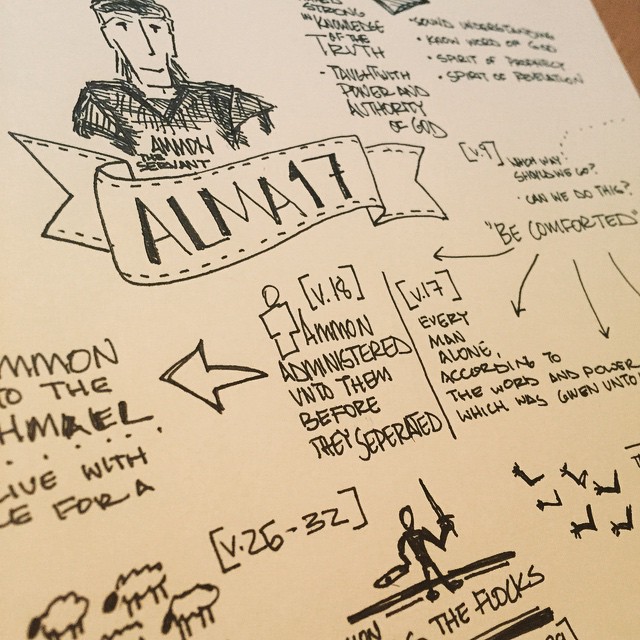 STRONG
IN KNOWLEDGE
OF THE
TRUTH
• TAUGHT WITH
POWER AND
AUTHORITY
OF GOD
• SOUND UNDERSTANDING
• KNOW WORD OF GOD
• SPIRIT OF PROPHECY
• SPIRIT OF REVELATION
AMMON
THE
SERVANT
ALMA 17
[V.9]
SHOULD WE GO?
• CAN WE DO THIS?
"BE COMFORTED"
[V.18]
AMMON
ADMINISTERED
UNTO THEM
BEFORE
THEY SEPERATED
[V.17]
EVERY
MAN
ALONE,
ACCORDING TO
THE WORD AND POWER
WHICH WAS GIVEN UNTO
MMON
TO THE
SHMAEL
LIVE WITH
LE FOR A
[V.26-32]
THE FLOCKS